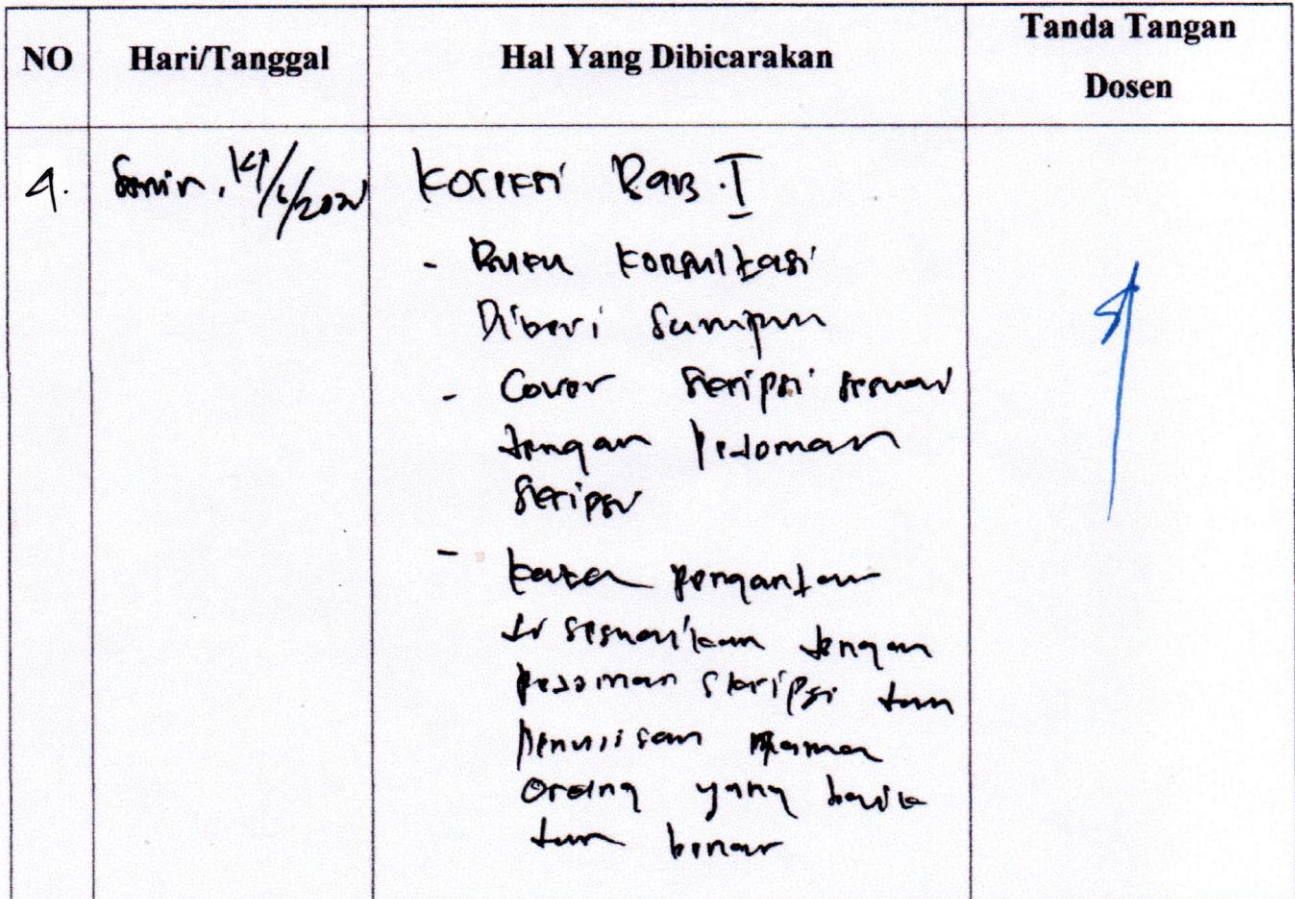 NO Hari/Tanggal Hal Yang Dibicarakan Tanda Tangan
Dosen
4. Senin, 14/6/202 Koreksi Bab. I
- Buku Konsultasi
Diberi Sampun
- Cover Skripsi sesuai
dengan Pedoman
Skripsi
- Kata pengantar
disesuaikan dengan
pedoman skripsi dan
penulisan nama
orang yang baik
dan benar